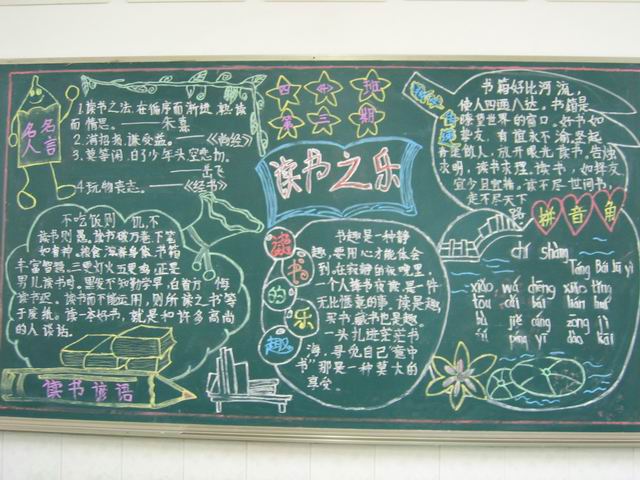 名人名言
1.读书之法,在循序而渐进,熟读
而情思。——朱熹
2.满招损,谦受益。——《尚经》
3.莫等闲,白了少年头,空悲切。
——岳飞
4.玩物丧志。——《经书》
四 班
第三期
读书之乐
书籍好比河流,
使人四通八达。书籍是
瞭望世界的窗口。好书如
挚友,
放开眼光读书。
求明,读书求理。读书,如择友
宜少且宜精。读不尽世间书,
走不尽天下
路
不吃饭则饥,不
读书则愚。读书破万卷,下笔
如有神。粮食
丰富智慧。三更灯火五更鸡,正是
男儿读书时。黑发不知勤学早,白首方悔
读书迟。读书而不能运用,则所读之书等
于废纸。读一本好书,就是和许多高尚
的人谈话。
读书谚语
读书的乐趣
书趣是一种静
趣,要用心才能体会
到,在寂静的夜晚里,
一个人读书夜读,是一件
无比惬意的事,读是趣,
买书、藏书也是趣。
一头扎进茫茫书
海,寻觅自己"意中
书"那是一种莫大的
享受。
拼音角
chí shàng
Táng Bái Jū yì
xiǎo wá chēng xiǎo tǐng
tōu cǎi bái lián huí
bù jiě cáng zōng jì
fú píng yí dào kāi